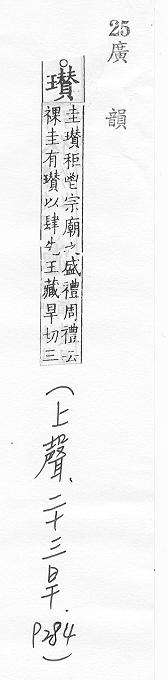 25廣韻
瓚
圭瓚秬鬯宗廟之盛禮周禮云
祼圭有瓚以肆先王藏旱切三
(上聲、二十三旱. P284)